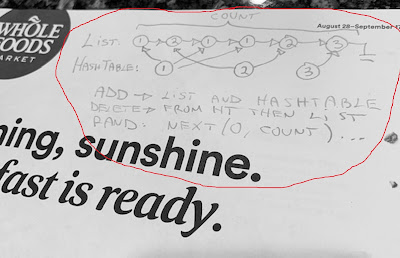 COUNT
WHOLE
FOODS
MARKET
August 28-September 17
LIST: 1 2 1 1 2 3 1
HASHTABLE: 1 2 3
ADD → LIST AND HASHTABLE
DELETE → FROM HT THEN LIST
RAND: NEXT (0, COUNT) ...
ning, sunshine.
fast is ready.